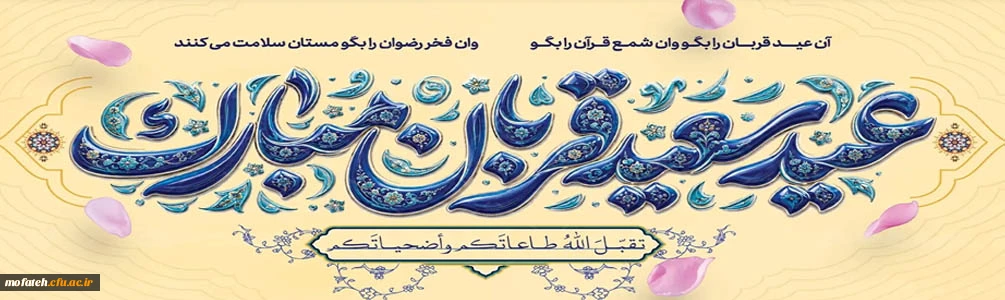 آن عید قربان را بگو وان شمع قرآن را بگو
وان فخر رضوان را بگو مستان سلامت می کنند
عید سعید قربان مبارک
تقبّلَ اللهُ طاعاتَكم وأضحياتَكم
mofateh.cfu.ac.ir